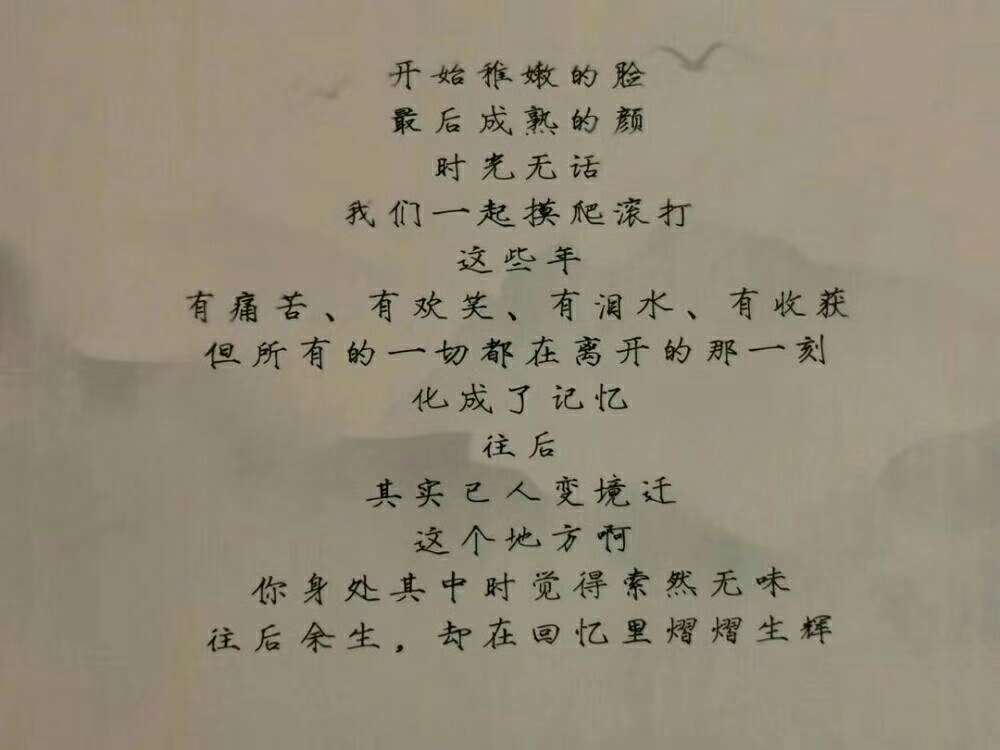 开始稚嫩的脸
最后成熟的颜
时光无话
我们一起摸爬滚打
这些年
有痛苦、有欢笑、有泪水、有收获
但所有的一切都在离开的那一刻
化成了记忆
往后
其实已人变境迁
这个地方啊
你身处其中时觉得索然无味
往后余生，却在回忆里熠熠生辉